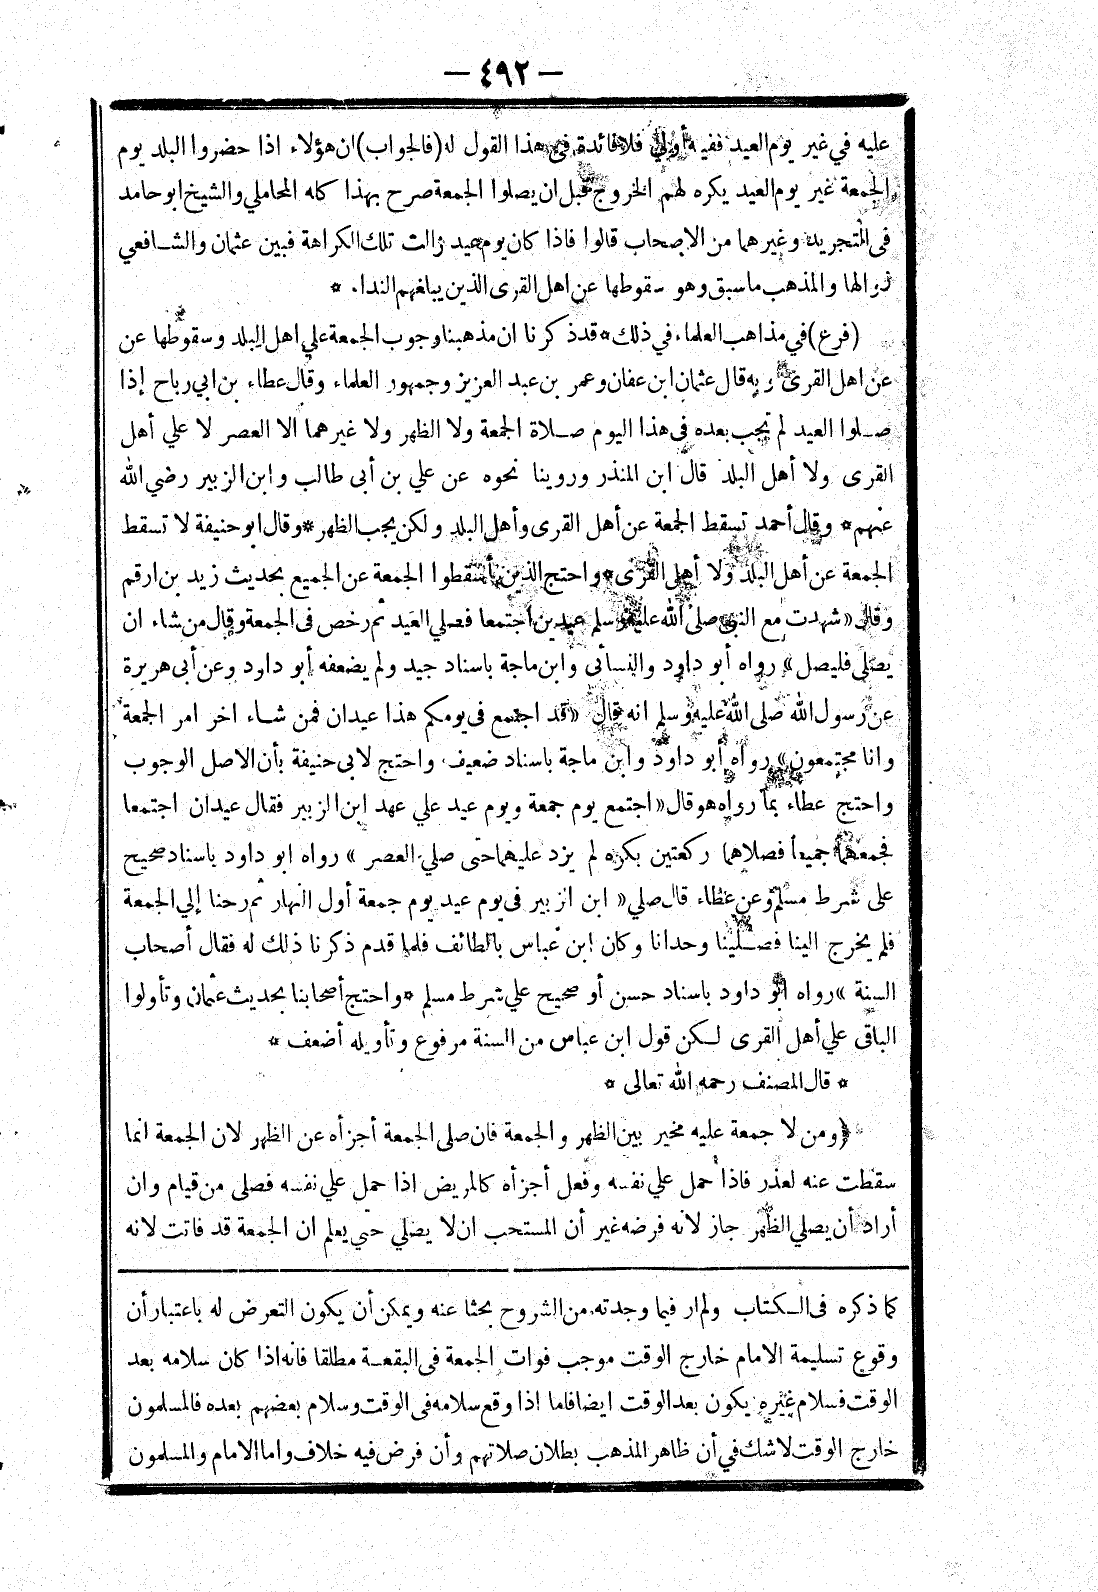 — ٤٩٢ —
عليه في غير يوم العيد ففيه أولى فلا فائدة في هذا القول له (فالجواب) ان هؤلاء اذا حضروا البلد يوم
الجمعة غير يوم العيد يكره لهم الخروج قبل ان يصلوا الجمعة صرح بهذا كله المحاملي والشيخ ابو حامد
فى التجريد وغيرهما من الاصحاب قالوا فاذا كان يوم عيد زالت تلك الكراهة فبين عثمان والشـافعي
زوالها والمذهب ماسبق وهو سقوطها عن اهل القرى الذين يبلغهم النداء. *
(فرع) في مذاهب العلماء في ذلك * قد ذكرنا ان مذهبنا وجوب الجمعة علي اهل البلد وسقوطها عن
عن اهل القرى وبه قال عثمان ابن عفان وعمر بن عبد العزيز وجمهور العلماء وقال عطاء بن ابي رباح إذا
صـلوا العيد لم تجب بعده في هذا اليوم صـلاة الجمعة ولا الظهر ولا غيرهما الا العصر لا علي أهل
القرى ولا أهل البلد قال ابن المنذر وروينا نحوه عن علي بن أبى طالب وابن الزبير رضي الله
عنهم * وقال أحمد تسقط الجمعة عن أهل القرى وأهل البلد ولكن يجب الظهر * وقال ابو حنيفة لا تسقط
الجمعة عن أهل البلد ولا أهل القرى * واحتج الذين أسقطوا الجمعة عن الجميع بحديث زيد بن ارقم
وقال « شهدت مع النبي صلى الله عليه وسلم عيدين اجتمعا فصلي العيد ثم رخص فى الجمعة وقال من شاء ان
يصلي فليصل » رواه أبو داود والنسأئى وابن ماجة باسناد جيد ولم يضعفه أبو داود وعن أبى هريرة
عن رسول الله صلى الله عليه وسلم انه قال « قد اجتمع فى يومكم هذا عيدان فمن شـاء اخر امر الجمعة
وانا مجتمعون » رواه أبو داود وابن ماجة باسناد ضعيف. واحتج لابى حنيفة بأن الاصل الوجوب
واحتج عطاء بما رواه هو قال « اجتمع يوم جمعة ويوم عيد علي عهد ابن الزبير فقال عيدان اجتمعا
فجمعهما جميعا فصلاهما ركعتين بكرة لم يزد عليهما حتى صلي العصر » رواه ابو داود باسناد صحيح
على شرط مسلم وعن عطاء قال صلي « ابن الزبير فى يوم عيد يوم جمعة أول النهار ثم رحنا إلي الجمعة
فلم يخرج الينا فصـلينا وحدانا وكان ابن عباس بالطائف فلما قدم ذكرنا ذلك له فقال أصحاب
السنة » رواه ابو داود باسناد حسن أو صحيح علي شرط مسلم * واحتج أصحابنا بحديث عثمان وتأولوا
الباقى علي أهل القرى لـكن قول ابن عباس من السنة مرفوع وتأويله أضعف *
* قال المصنف رحمه الله تعالى *
﴿ ومن لا جمعة عليه مخير بين الظهر والجمعة فان صلى الجمعة أجزأه عن الظهر لان الجمعة انما
سقطت عنه لعذر فاذا حمل علي نفسه وفعل أجزأه كالمريض اذا حمل علي نفسه فصلى من قيام وان
أراد أن يصلي الظهر جاز لانه فرضه غير أن المستحب ان لا يصلي حتى يعلم ان الجمعة قد فاتت لانه
كما ذكره فى الـكتاب ولم ار فيما وجدته من الشروح بحثا عنه ويمكن أن يكون التعرض له باعتبار أن
وقوع تسليمة الامام خارج الوقت موجب فوات الجمعة فى البقعـة مطلقا فانه اذا كان سلامه بعد
الوقت فسلام غيره يكون بعد الوقت ايضا فاما اذا وقع سلامه فى الوقت وسلام بعضهم بعده فالمسلمون
خارج الوقت لا شك في أن ظاهر المذهب بطلان صلاتهم وأن فرض فيه خلاف واما الامام والمسلمون